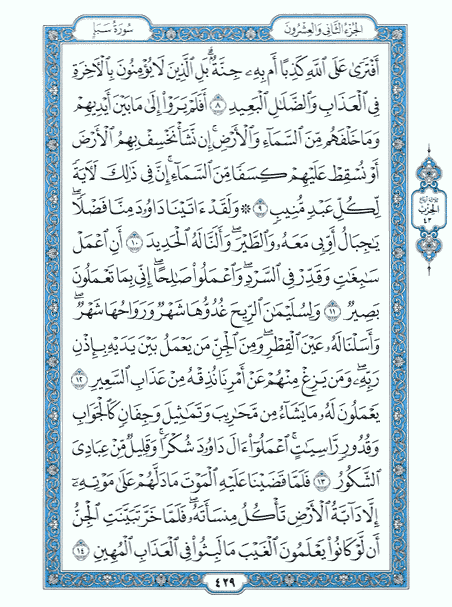 الجزء الثاني والعشرون
سورة سبإ
أَفْتَرَىٰ عَلَى ٱللَّهِ كَذِبًا أَم بِهِۦ جِنَّةٌۢ ۗ بَلِ ٱلَّذِينَ لَا يُؤْمِنُونَ بِٱلْـَٔاخِرَةِ
فِى ٱلْعَذَابِ وَٱلضَّلَـٰلِ ٱلْبَعِيدِ ٨ أَفَلَمْ يَرَوْا۟ إِلَىٰ مَا بَيْنَ أَيْدِيهِمْ
وَمَا خَلْفَهُم مِّنَ ٱلسَّمَآءِ وَٱلْأَرْضِ ۚ إِن نَّشَأْ نَخْسِفْ بِهِمُ ٱلْأَرْضَ
أَوْ نُسْقِطْ عَلَيْهِمْ كِسَفًا مِّنَ ٱلسَّمَآءِ ۚ إِنَّ فِى ذَٰلِكَ لَـَٔايَةً
لِّكُلِّ عَبْدٍ مُّنِيبٍ ٩ ۞ وَلَقَدْ ءَاتَيْنَا دَاوُۥدَ مِنَّا فَضْلًا ۖ
يَـٰجِبَالُ أَوِّبِى مَعَهُۥ وَٱلطَّيْرَ ۖ وَأَلَنَّا لَهُ ٱلْحَدِيدَ ١٠ أَنِ ٱعْمَلْ
سَـٰبِغَـٰتٍ وَقَدِّرْ فِى ٱلسَّرْدِ ۖ وَٱعْمَلُوا۟ صَـٰلِحًا ۖ إِنِّى بِمَا تَعْمَلُونَ
بَصِيرٌ ١١ وَلِسُلَيْمَـٰنَ ٱلرِّيحَ غُدُوُّهَا شَهْرٌ وَرَوَاحُهَا شَهْرٌ ۖ
وَأَسَلْنَا لَهُۥ عَيْنَ ٱلْقِطْرِ ۖ وَمِنَ ٱلْجِنِّ مَن يَعْمَلُ بَيْنَ يَدَيْهِ بِإِذْنِ
رَبِّهِۦ ۖ وَمَن يَزِغْ مِنْهُمْ عَنْ أَمْرِنَا نُذِقْهُ مِنْ عَذَابِ ٱلسَّعِيرِ ١٢
يَعْمَلُونَ لَهُۥ مَا يَشَآءُ مِن مَّحَـٰرِيبَ وَتَمَـٰثِيلَ وَجِفَانٍ كَٱلْجَوَابِ
وَقُدُورٍ رَّاسِيَـٰتٍ ۚ ٱعْمَلُوٓا۟ ءَالَ دَاوُۥدَ شُكْرًا ۚ وَقَلِيلٌ مِّنْ عِبَادِىَ
ٱلشَّكُورُ ١٣ فَلَمَّا قَضَيْنَا عَلَيْهِ ٱلْمَوْتَ مَا دَلَّهُمْ عَلَىٰ مَوْتِهِۦٓ
إِلَّا دَآبَّةُ ٱلْأَرْضِ تَأْكُلُ مِنسَأَتَهُۥ ۖ فَلَمَّا خَرَّ تَبَيَّنَتِ ٱلْجِنُّ
أَن لَّوْ كَانُوا۟ يَعْلَمُونَ ٱلْغَيْبَ مَا لَبِثُوا۟ فِى ٱلْعَذَابِ ٱلْمُهِينِ ١٤
الحزب
٤٣
٤٢٩